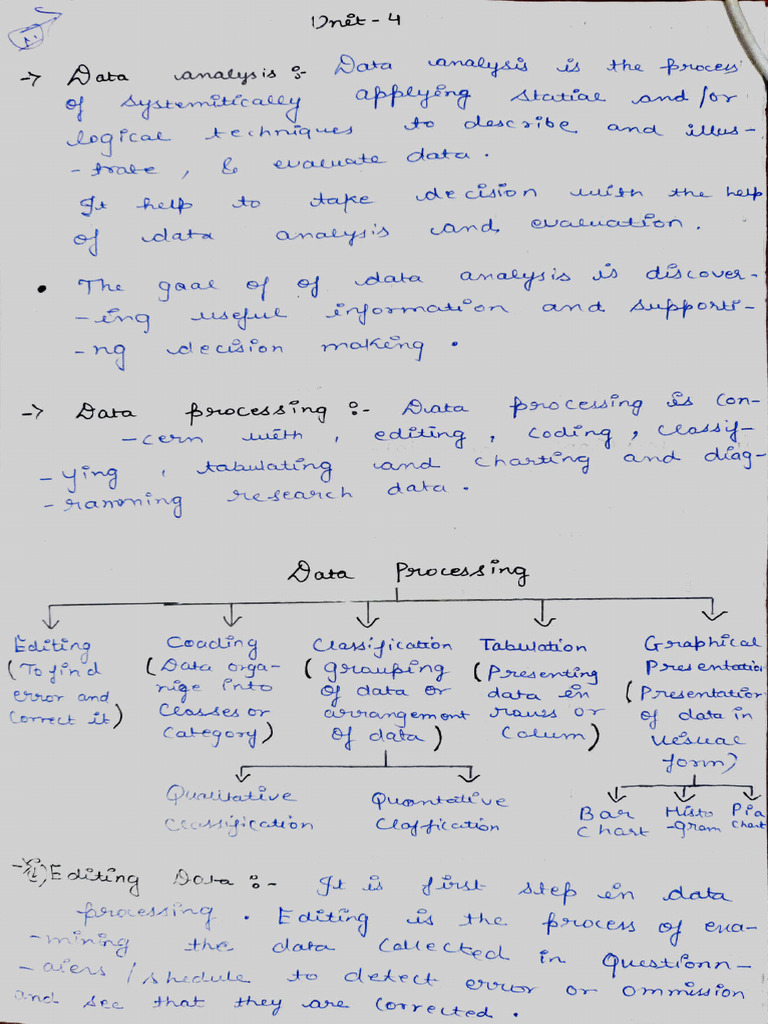 Unit - 4
→ Data analysis :- Data analysis is the process
of systemitically applying statial and/or
logical techniques to describe and illus-
-trate, & evaluate data.
It help to take decision with the help
of data analysis and evaluation.
• The goal of of data analysis is discover-
-ing useful information and supporti-
-ng decision making.
→ Data processing :- Data processing is con-
-cern with, editing, coding, classif-
-ying, tabulating and charting and diag-
-ramming research data.
Data Processing
Editing Coading Classification Tabulation Graphical
(To find (Data orga- (grouping (Presenting Presentation
error and nige into of data or data in (Presentation
correct it) classes or arrangement rows or of data in
category) of data) column) visual
form)
Qualitative Quantative Bar Histo Pia
Classification Claffication chart -gram chart
Editing Data :- It is first step in data
processing. Editing is the process of exa-
-mining the data collected in Questionn-
-aiers/shedule to detect error or ommission
and see that they are corrected.